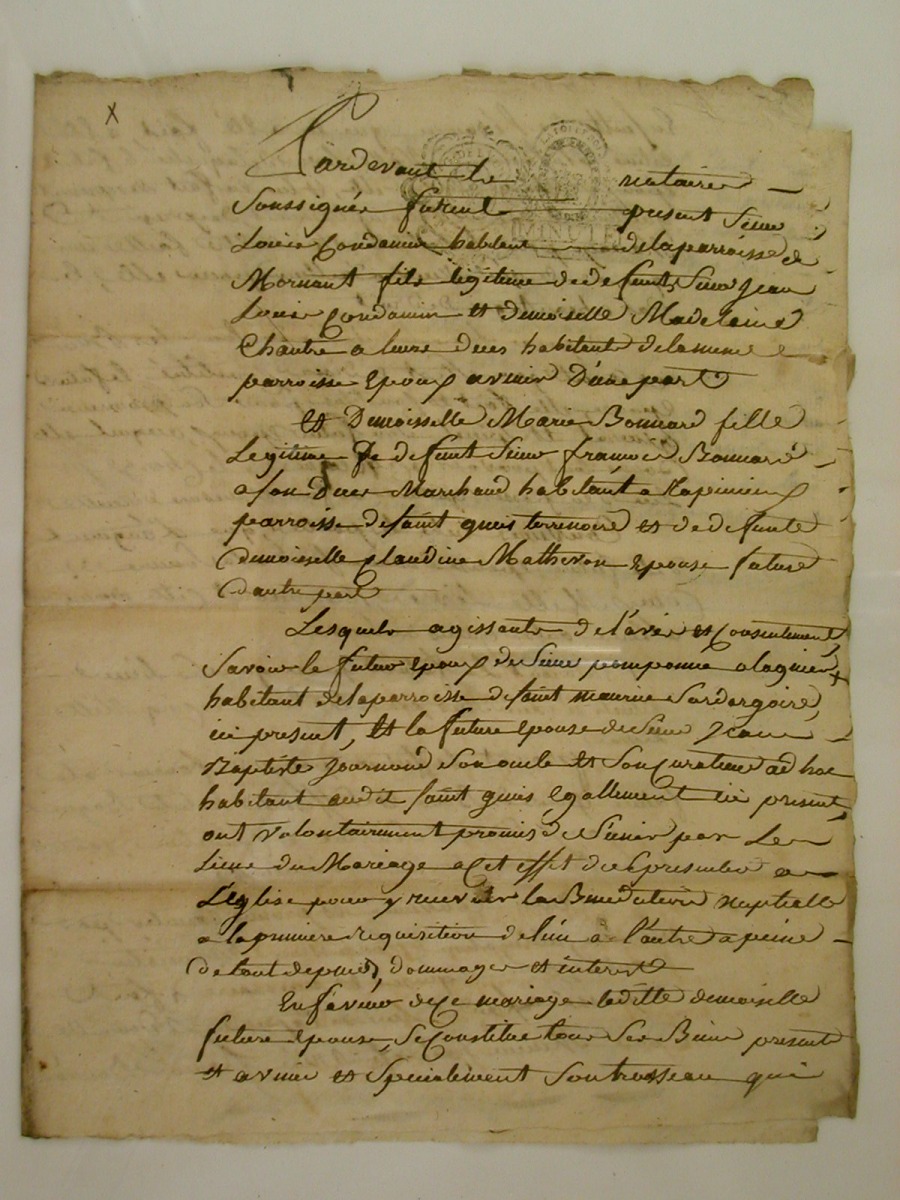 X
Pardevant le notaire
Soussignés furent present Sieur
Louis Condamin habitant de la parroisse de
Mornant fils legitime de defunts Sieur Jean
Louis Condamin et demoiselle Madelaine
Chantre a leurs deces habitant de la meme
parroisse Epoux avenir D'une part
et Demoiselle Marie Bonnard fille
Legitime De defunt Sieur françois Bonnard
a son Deces Marchand habitant a
parroisse de saint genis terrenoire et de defunte
demoiselle Claudine Matheron Epouse future
d'autre part
Lesquels agissants de l'avis et Consentement
Savoir le futur Epoux de Sieur pomponne
habitant de la parroisse de saint maurice Sur dargoire,
ici present, et la future epouse de Sieur Jean
Baptiste Journoud Son oncle et Son Curateur ad hoc
habitant audit saint genis egallement ici present
ont volontairement promis de S'unir par Le
Lien du Mariage a Cet effet de se presenter a
L'église pour y recevoir la Benediction Nuptialle
a la premiere requisition de l'un a l'autre a peine
de tout depens, dommages et interest
En faveur de Ce mariage laditte demoiselle
future epouse, Se Constitue tous Ses Biens present
et avenir et Specialement Son trosseau qui